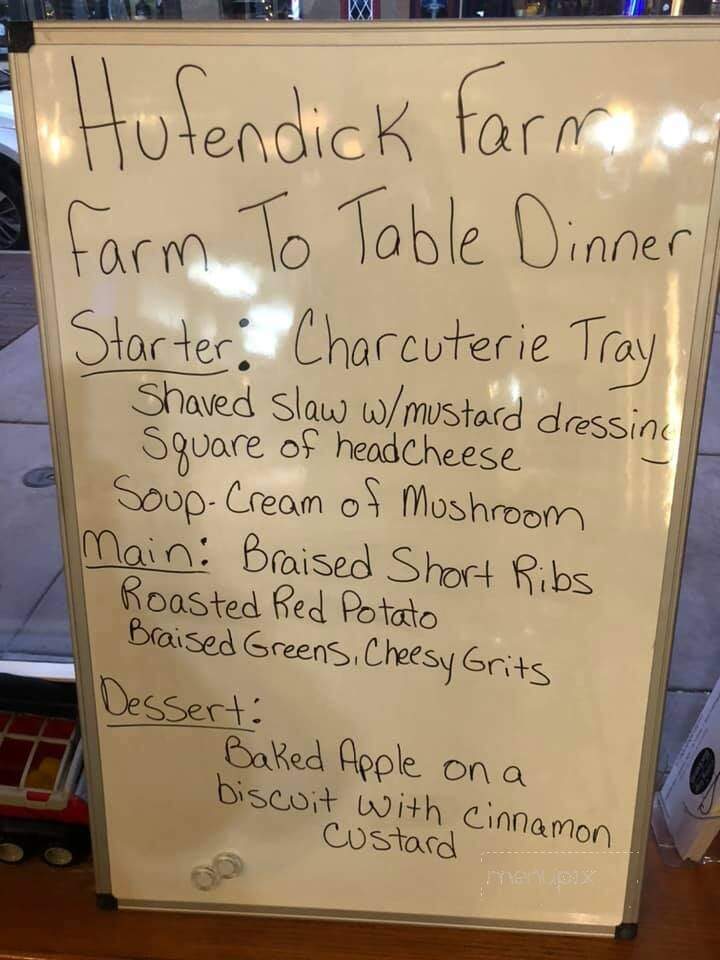 Hufendick Farm
Farm To Table Dinner
Starter: Charcuterie Tray
Shaved slaw w/mustard dressing
Square of headcheese
Soup-Cream of Mushroom
Main: Braised Short Ribs
Roasted Red Potato
Braised Greens, Cheesy Grits
Dessert:
Baked Apple on a
biscuit with cinnamon
custard
menupix